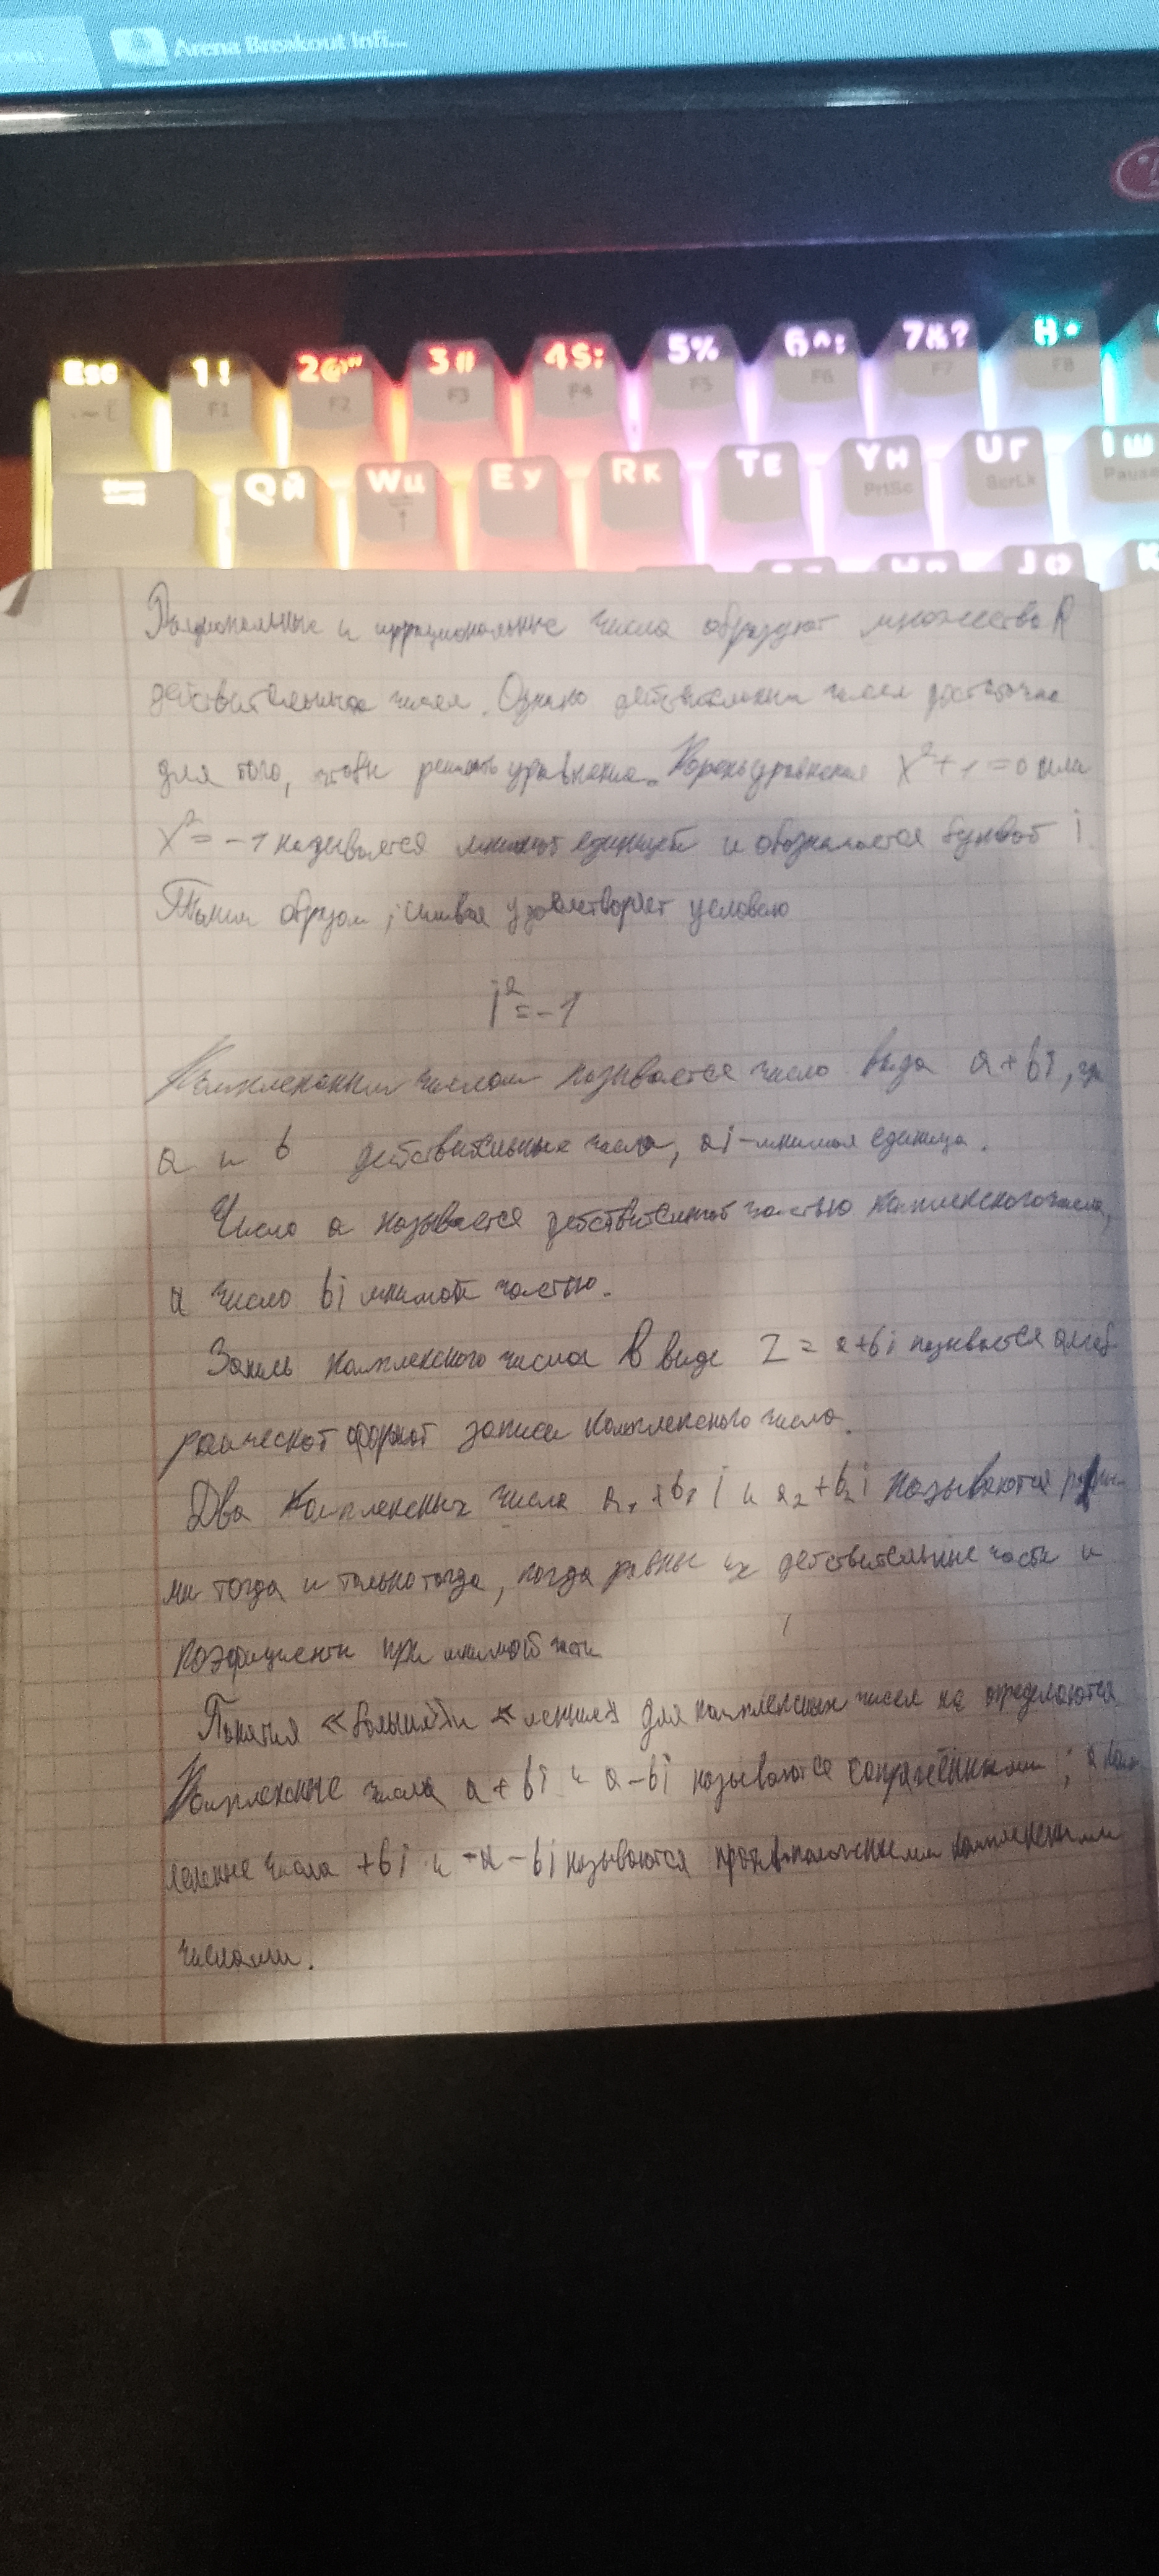 Arena Breakout Infi...
Esc 1! 2@" 3# 4$; 5% 6^: 7&? 8*
~ Ё F1 F2 F3 F4 F5 F6 F7 F8
Q Й W Ц E У R К T Е Y Н U Г I Ш
PrtSc ScrLk Pause
J О K
Рациональные и иррациональные числа образуют множество R
действительных чисел. Однако действительных чисел достаточно
для того, чтобы решать уравнения. Корень уравнения x²+1=0 или
x²=-1 называется мнимой единицей и обозначается буквой i
Таким образом, символ удовлетворяет условию
i²=-1
Комплексным числом называется число вида a+bi, где
a и b действительные числа, а i-мнимая единица.
Число a называется действительной частью комплексного числа,
а число bi мнимой частью.
Запись комплексного числа в виде Z=a+bi называется алгеб
раической формой записи комплексного числа.
Два комплексных числа a₁+b₁i и a₂+b₂i называются равны
ми тогда и только тогда, когда равны их действительные части и
коэфициенты при мнимой части
Понятия «больше» и «меньше» для комплексных чисел не определяются
Комплексные числа a+bi и a-bi называются сопряжёнными; а комп
лексные числа +bi и -a-bi называются противоположными комплексными
числами.